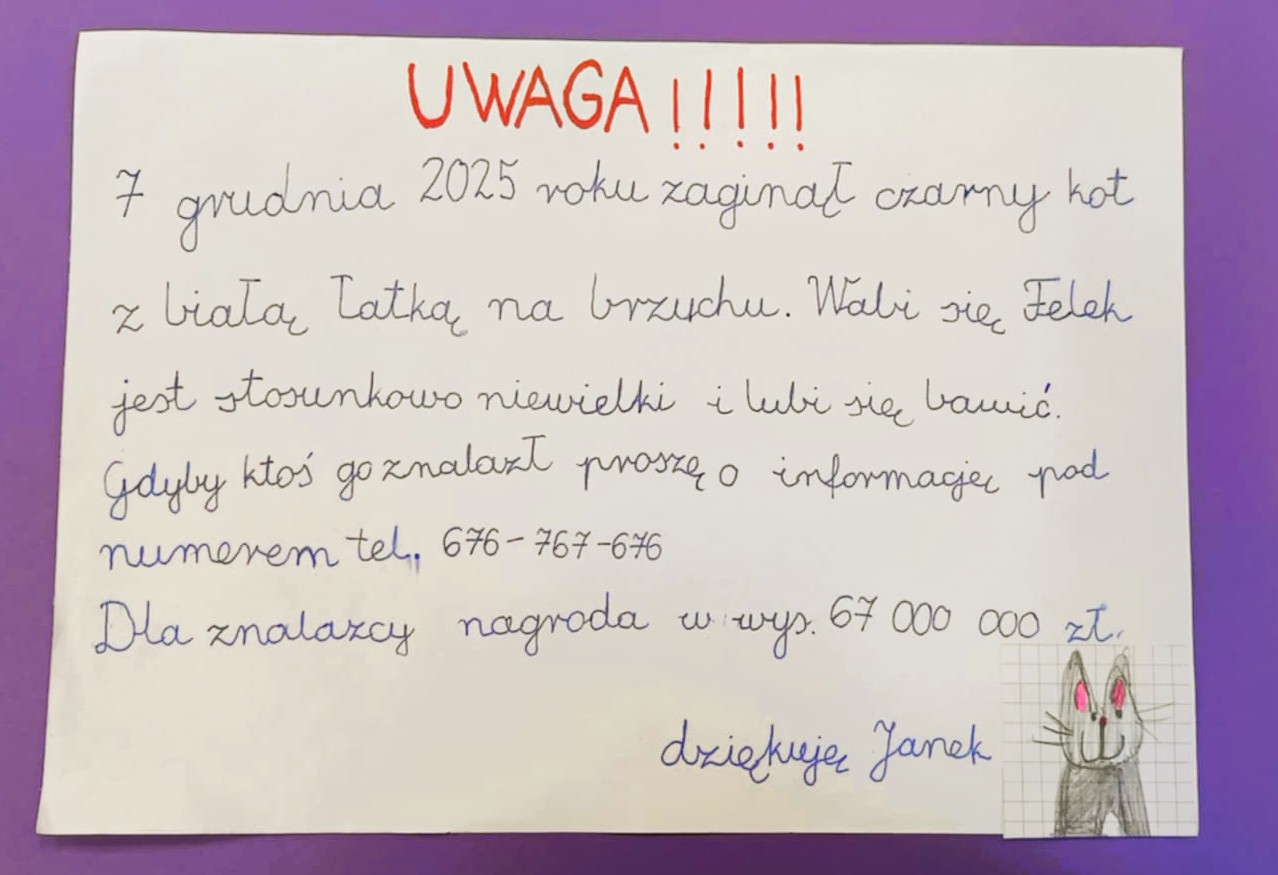 UWAGA!!!!!
7 grudnia 2025 roku zaginął czarny kot
z białą łatką na brzuchu. Wabi się Felek
jest stosunkowo niewielki i lubi się bawić.
Gdyby ktoś go znalazł proszę o informację pod
numerem tel. 676-767-676
Dla znalazcy nagroda w wys. 67 000 000 zł.
dziękuję Janek